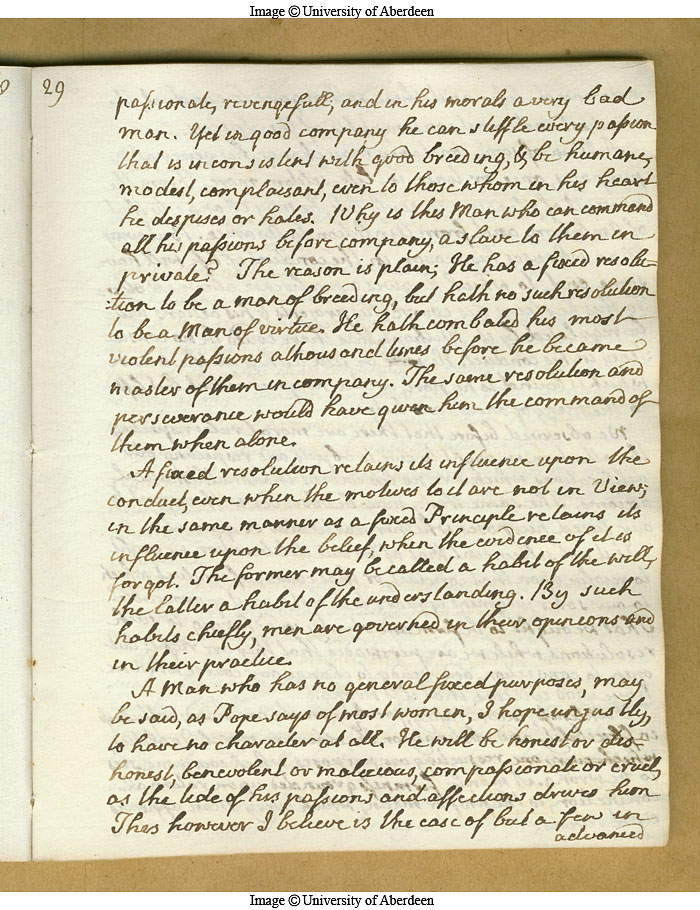 Image © University of Aberdeen
29
passionate, revengefull, and in his morals a very bad
man. Yet in good company he can stiffle every passion
that is inconsistent with good breeding, & be humane,
modest, complaisant, even to those whom in his heart
he despises or hates. Why is this Man who can command
all his passions before company, a slave to them in
private? The reason is plain; He has a fixed resolu-
:tion to be a man of breeding, but hath no such resolution
to be a Man of virtue. He hath combated his most
violent passions a thousand times before he became
master of them in company. The same resolution and
perseverance would have given him the command of
them when alone.
A fixed resolution retains its influence upon the
conduct, even when the motives to it are not in View;
in the same manner as a fixed Principle retains its
influence upon the belief, when the evidence of it is
forgot. The former may be called a habit of the will,
the latter a habit of the understanding. By such
habits chiefly, men are governed in their opinions and
in their practice.
A Man who has no general fixed purposes, may
be said, as Pope says of most women, I hope unjustly,
to have no character at all. He will be honest or dis-
honest, benevolent or malicious, compassionate or cruel,
as the tide of his passions and affections drives him
This however I believe is the case of but a few in
advanced
Image © University of Aberdeen